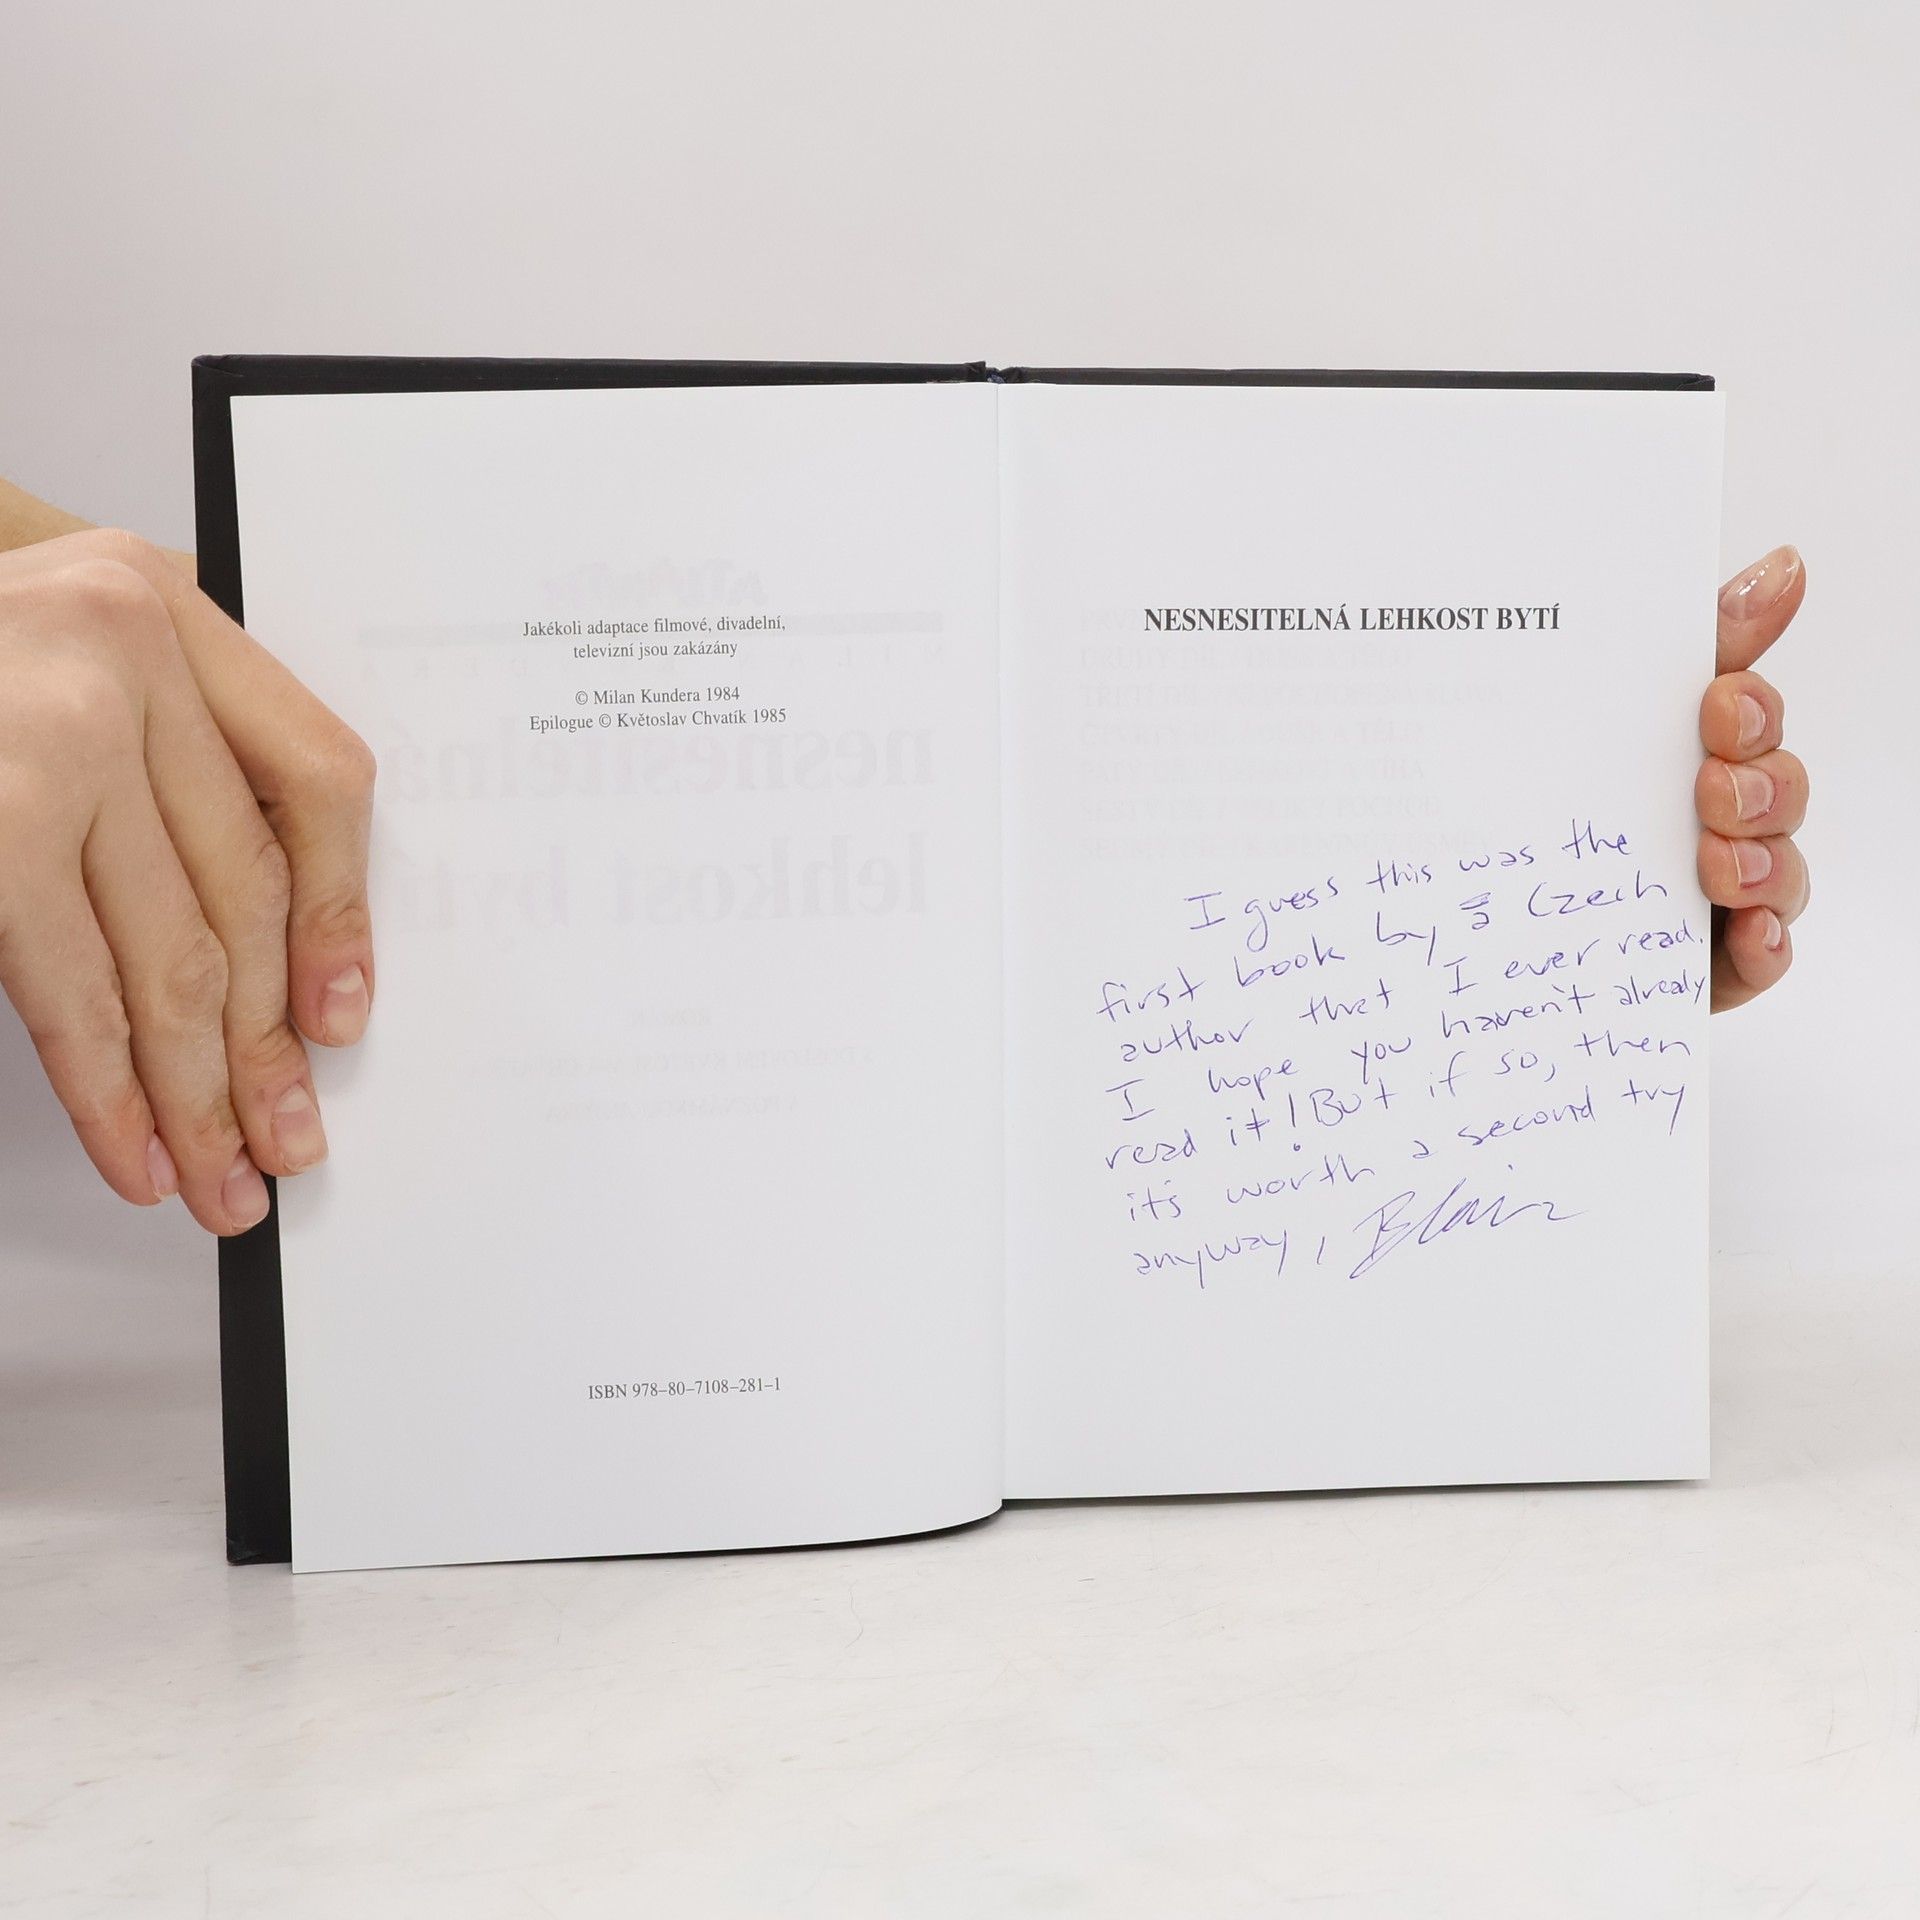 Jakékoli adaptace filmové, divadelní,
televizní jsou zakázány
© Milan Kundera 1984
Epilogue © Květoslav Chvatík 1985
ISBN 978–80–7108–281–1
NESNESITELNÁ LEHKOST BYTÍ
I guess this was the
first book by a Czech
author that I ever read.
I hope you haven't already
read it! But if so, then
it's worth a second try
anyway, Blair